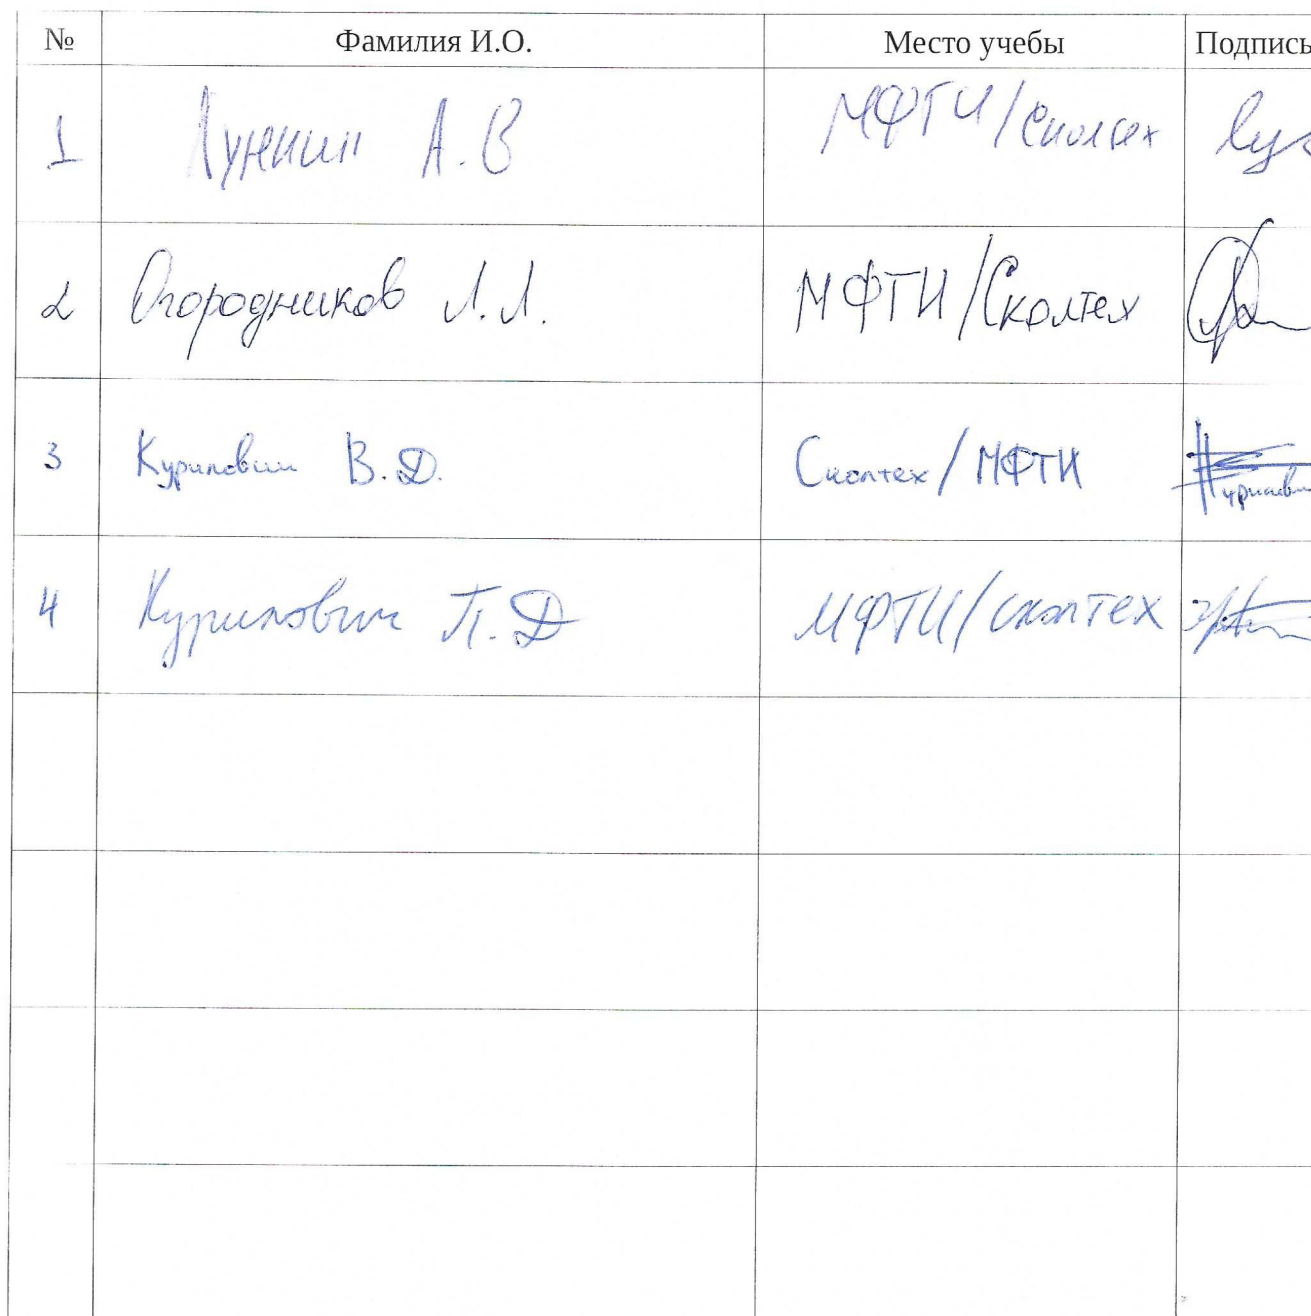 № Фамилия И.О. Место учебы Подпись
1 Лункин А.В МФТИ/Сколтех
2 Огородников Л.Л. МФТИ/Сколтех
3 Курилович В.Д. Сколтех/МФТИ
4 Курилович П.Д МФТИ/Сколтех